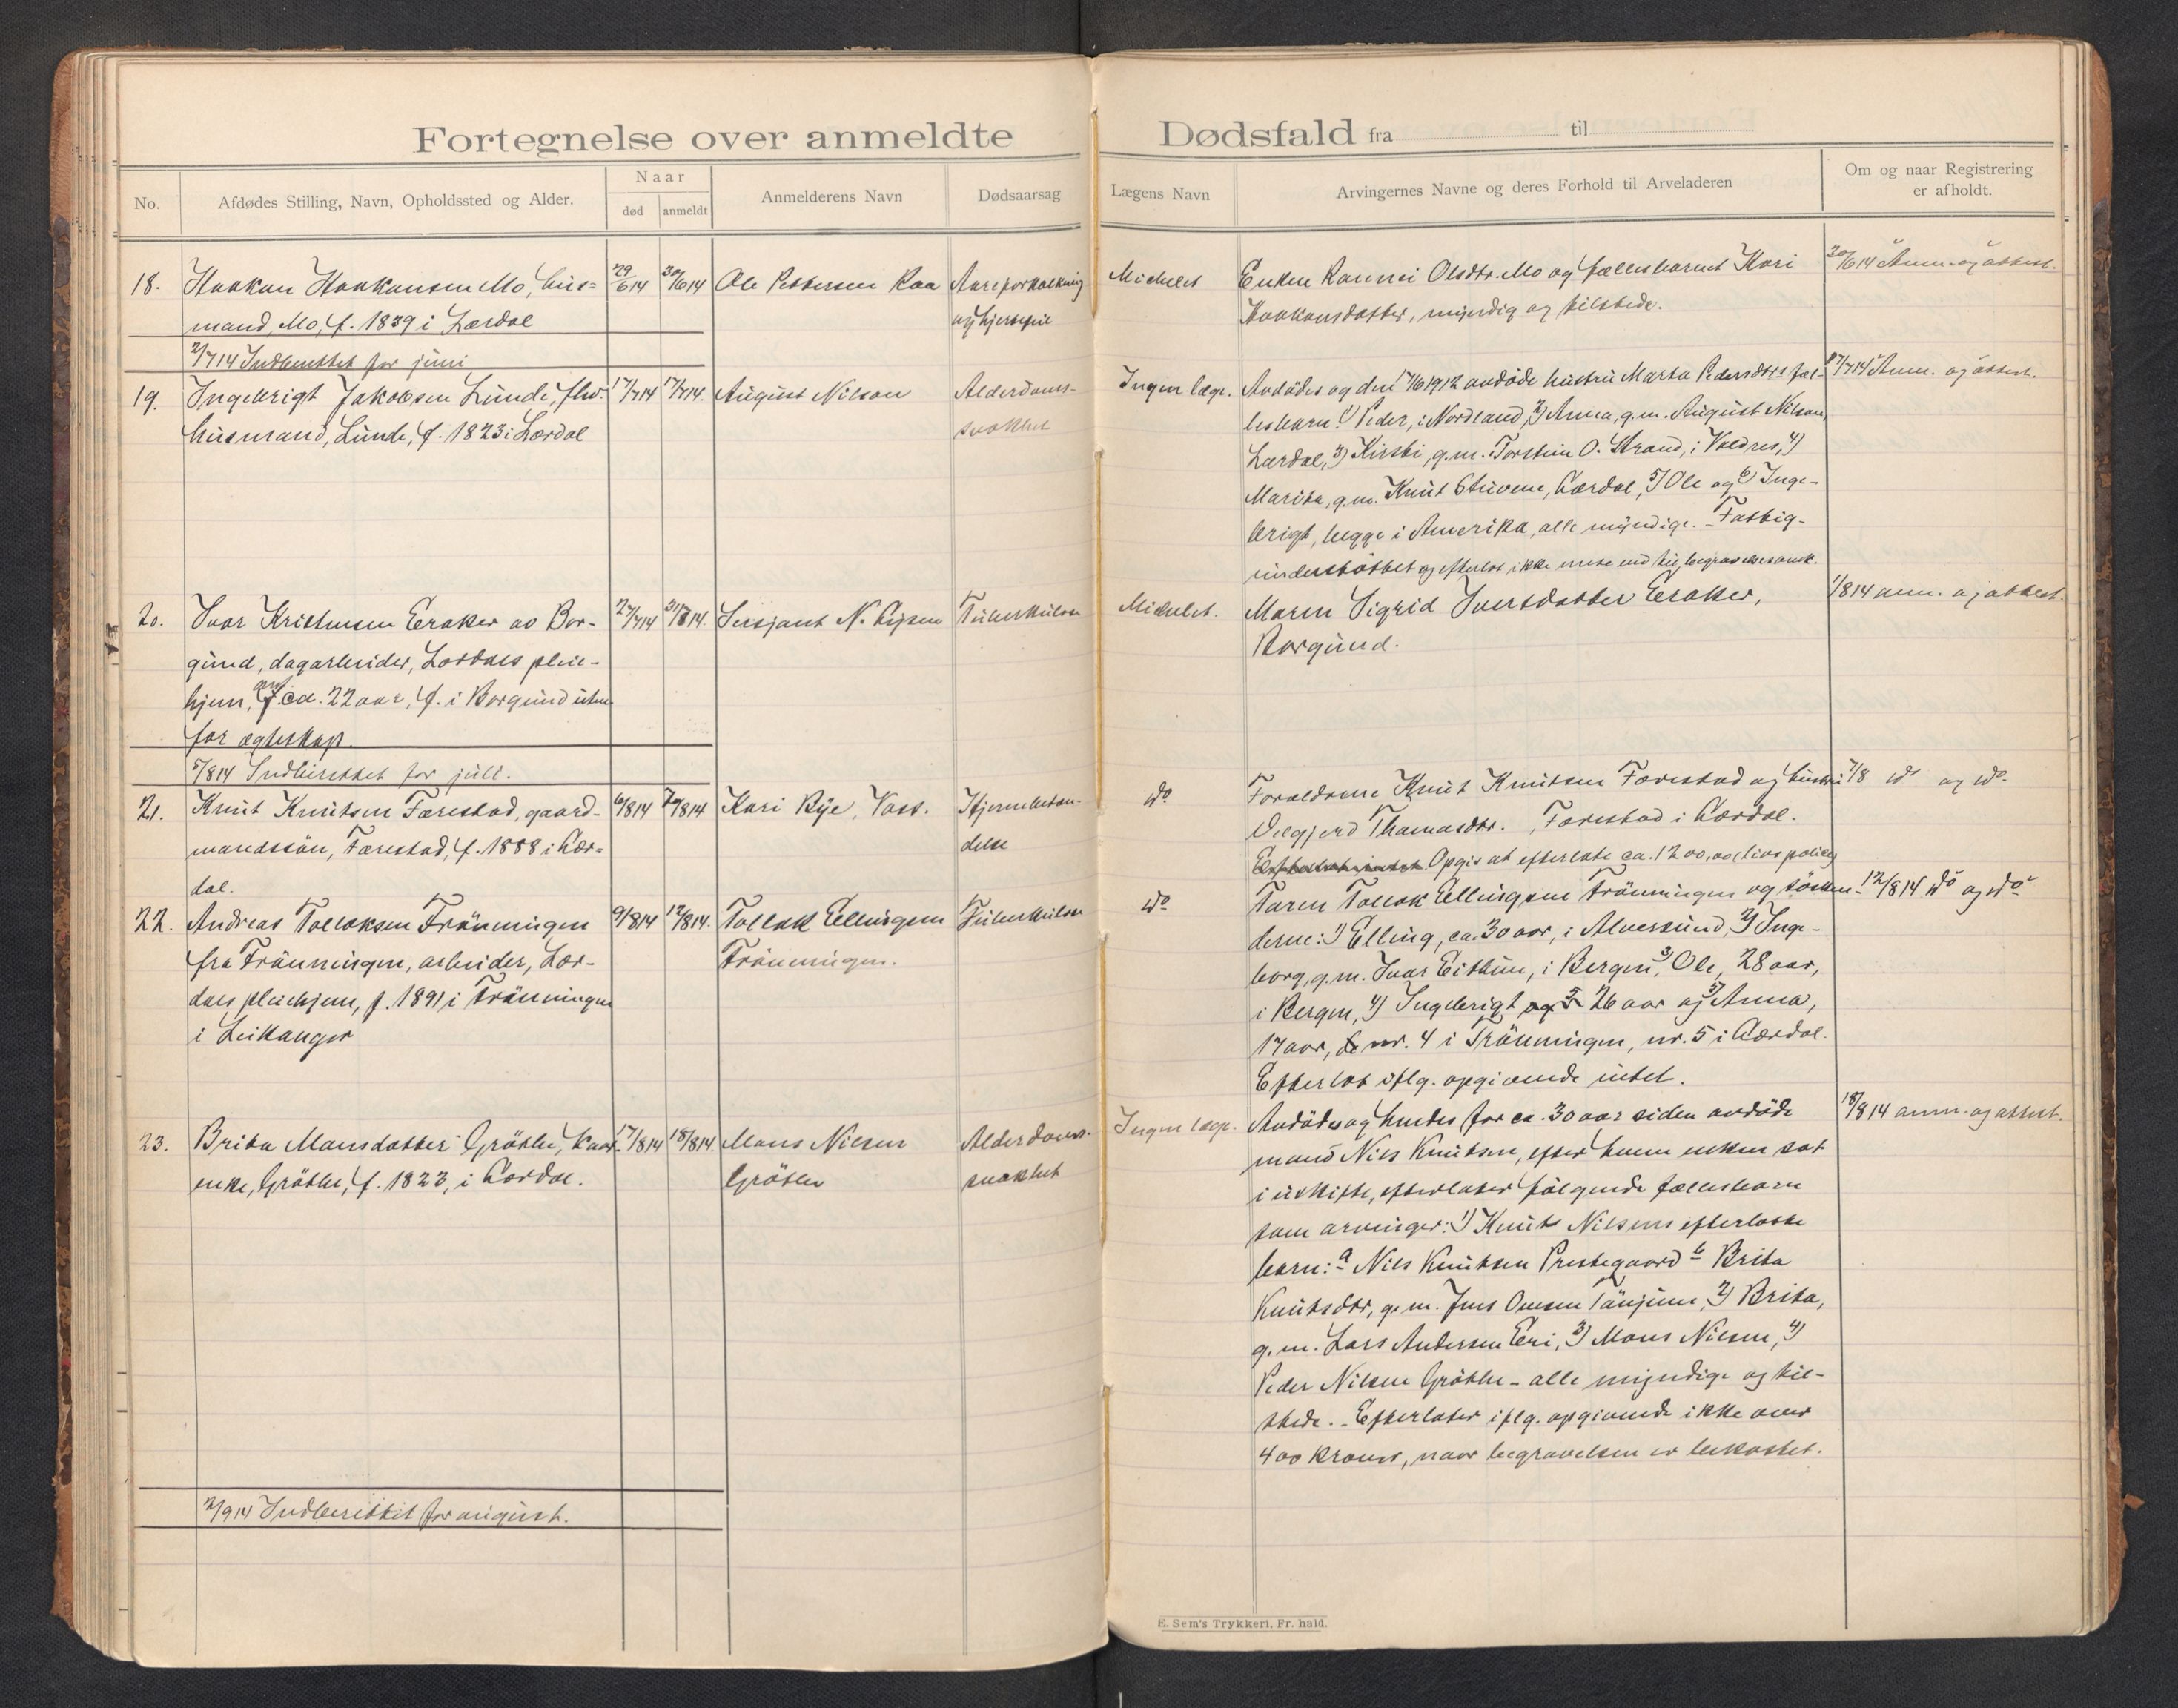 Fortegnelse over anmeldte Dødsfald fra til
No.
Afdødes Stilling, Navn, Opholdssted og Alder.
Naar
død
anmeldt
Anmelderens Navn
Dødsaarsag
Lægens Navn
Arvingernes Navne og deres Forhold til Arveladeren
Om og naar Registrering
er afholdt.
18.
Haakon Haakonsen Mo, hus-
mand, Mo, f. 1839 i Lærdal
29/614
30/614
Ole Pettersen Raa
Aareforkalkning
og hjertefeil
Michelet
Enken Rannei Olsdtr. Mo og fællesbarnet Kari
Haakonsdatter, myndig og tilstede.
30/614 Anm. og attest.
2/714 Indberettet for juni
19.
Ingebrigt Jakobsen Lunde, fhv.
husmand, Lunde, f. 1823 i Lærdal
17/714
17/714.
August Nilson
Alderdoms-
svakhet
Ingen læge.
Avdødes og den 7/6 1912 avdøde hustru Marta Pedersdtrs fæl-
lesbarn: 1) Peder, i Nordland, 2) Anna, g.m. August Nilson,
Lærdal, 3) Kirsti, g.m. Torstein O. Strand, i Valdres, 4)
Marita, g.m. Knut Stuvene, Lærdal, 5) Ole og 6) Inge-
brigt, begge i Amerika, alle myndige. – Fattig-
understøttet og efterlot ikke mere end til begravelsesomk.
17/714 Anm. og attest.
20.
Ivar Kristensen Eraker av Bor-
gund, dagarbeider, Lærdals pleie-
hjem, ca. 22 aar, f. i Borgund uten-
for ægteskap.
27/714
31/714.
Sersjant N. Rysen
Tuberkulose
Michelet.
Maren Sigrid Iversdatter Eraker,
Borgund.
1/814 anm. og attest.
5/814 Indberettet for juli.
21.
Knut Knutsen Færestad, gaard-
mandssøn, Færestad, f. 1888 i Lær-
dal.
6/814
7/814
Kari Rye, Voss.
Hjernebetæn-
delse
do
Forældrene Knut Knutsen Færestad og hustru
Velgjerd Thomasdtr. Færestad i Lærdal.
Opgis at efterlate ca. 1200,00 (livspolice)
7/8 do og do.
22.
Andreas Tollaksen Frønningen
fra Frønningen, arbeider, Lær-
dals pleiehjem, f. 1891 i Frønningen
i Leikanger
9/814
12/814.
Tollak Ellingsen
Frønningen.
Tuberkulose
do
Faren Tollak Ellingsen Frønningen og søsken-
derne: 1) Elling, ca. 30 aar, i Alversund, 2) Inge-
borg, g.m. Ivar Eithun, i Bergen, 3) Ole, 28 aar,
i Bergen, 4) Ingebrigt 26 aar og 5) Anna,
17 aar, nr. 4 i Frønningen, nr. 5 i Lærdal.
Efterlot iflg. opgivende intet.
12/814 do og do
23.
Brita Monsdatter Grøthe, kaar-
enke, Grøthe, f. 1823, i Lærdal.
17/814
18/814.
Mons Nilsen
Grøthe
Alderdoms-
svakhet
Ingen læge.
Avdøde og hendes for ca. 30 aar siden avdøde
mand Nils Knutsen, efter hvem enken sat
i uskifte, efterlater følgende fællesbarn
som arvinger: 1) Knut Nilsens efterlatte
barn: a Nils Knutsen Prestegaard b Brita
Knutsdtr, g.m. Jens Ovesen Tønjum, 2) Brita,
g.m. Lars Andersen Eri, 3) Mons Nilsen, 4)
Peder Nilsen Grøthe – alle myndige og til-
stede. – Efterlater iflg. opgivende ikke over
400 kroner, naar begravelsen er bekostet.
18/814 anm. og attest.
2/914 Indberettet for august.
E. Sem's Trykkeri, Fr. hald.